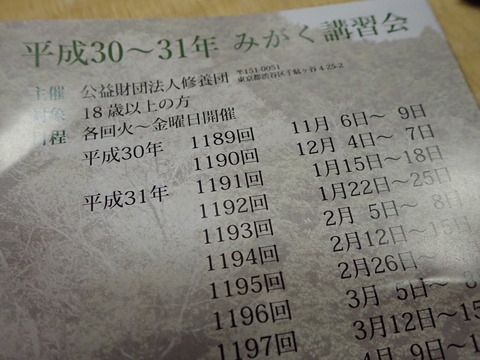 平成30〜31年 みがく講習会
主催 公益財団法人修養団 〒151-0051
東京都渋谷区千駄ヶ谷 4-25-2
対象 18歳以上の方
日程 各回火〜金曜日開催
平成30年 1189回 11月 6日〜 9日
1190回 12月 4日〜 7日
平成31年 1191回 1月15日〜18日
1192回 1月22日〜25日
1193回 2月 5日〜 8日
1194回 2月12日〜15日
1195回 2月26日〜
1196回 3月 5日〜
1197回 3月12日〜
4月 9日〜